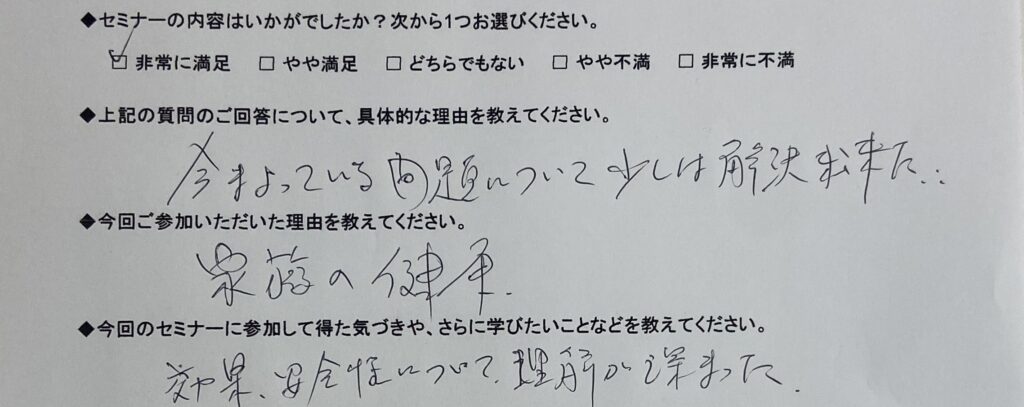 ◆セミナーの内容はいかがでしたか？次から1つお選びください。
☑ 非常に満足 □ やや満足 □ どちらでもない □ やや不満 □ 非常に不満
◆上記の質問のご回答について、具体的な理由を教えてください。
今まよっている問題について少しは解決出来た..
◆今回ご参加いただいた理由を教えてください。
家族の健康.
◆今回のセミナーに参加して得た気づきや、さらに学びたいことなどを教えてください。
効果、安全性について、理解が深まった.